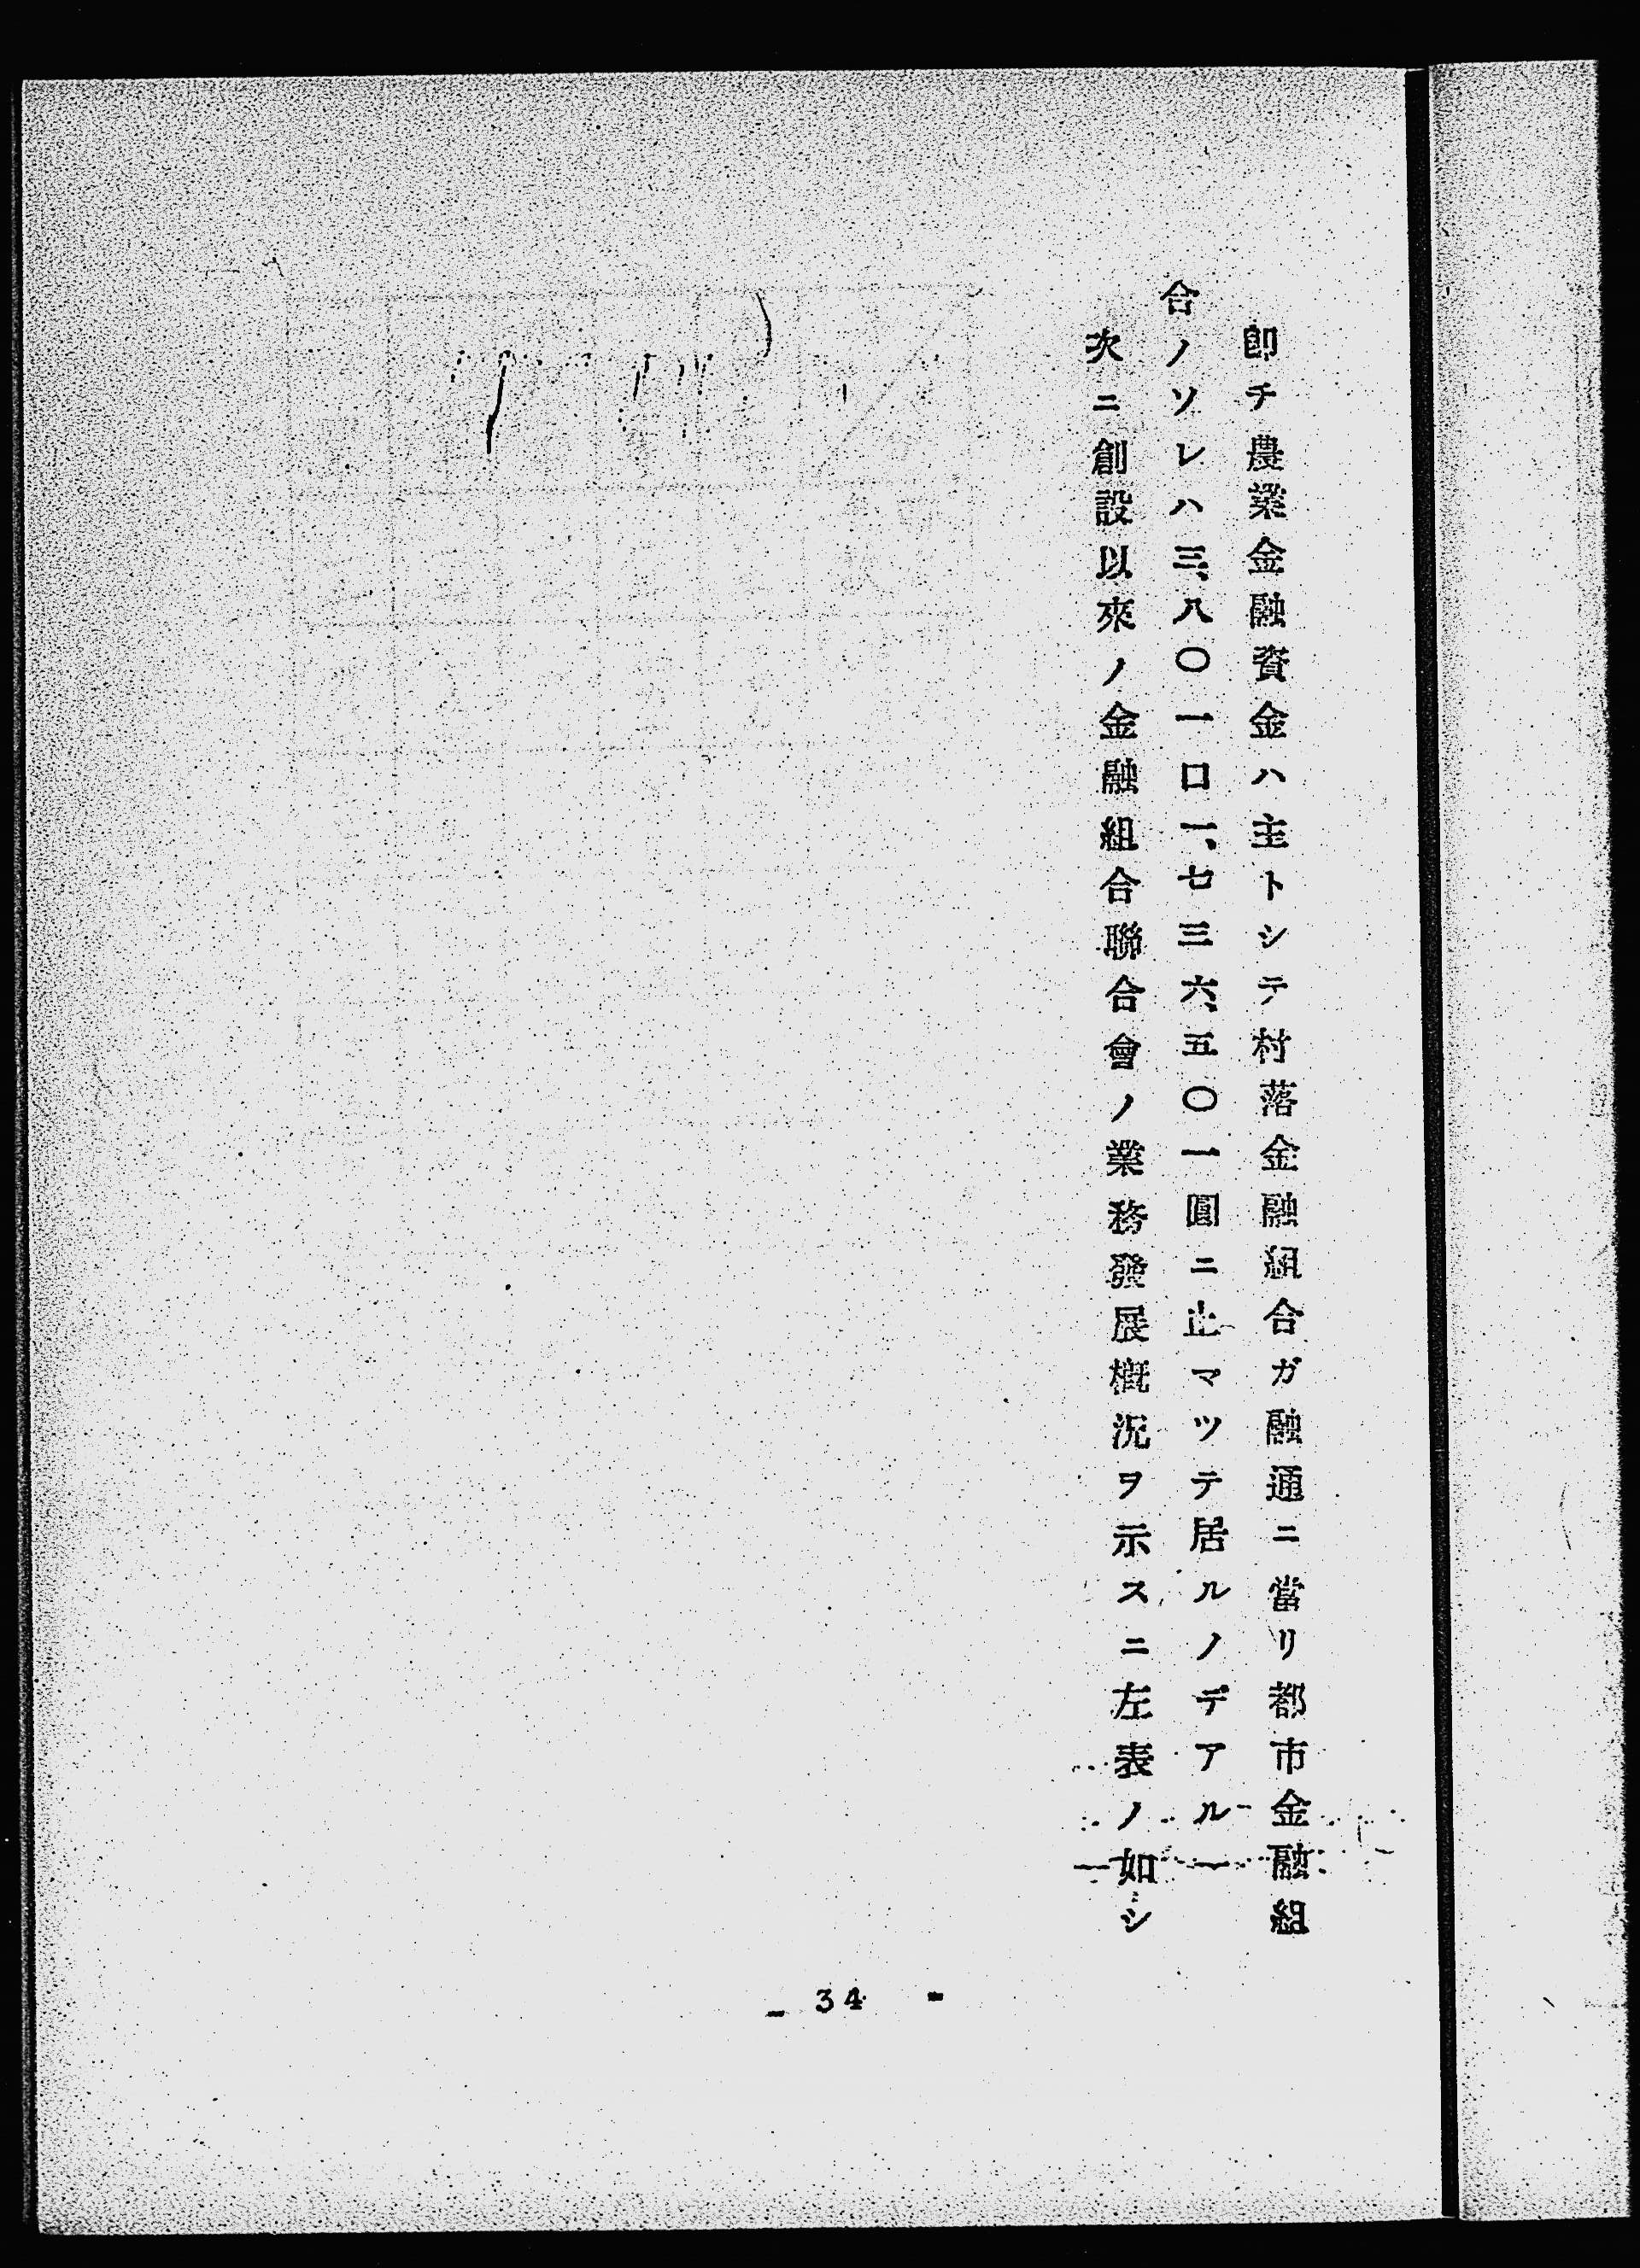 卽チ農業金融資金ハ主トシテ村落金融組合ガ融通ニ當リ都市金融組
合ノソレハ三、八〇一口一、七三六、五〇一圓ニ止マツテ居ルノデアル
次ニ創設以來ノ金融組合聯合會ノ業務發展槪況ヲ示スニ左表ノ如シ
- 34 -